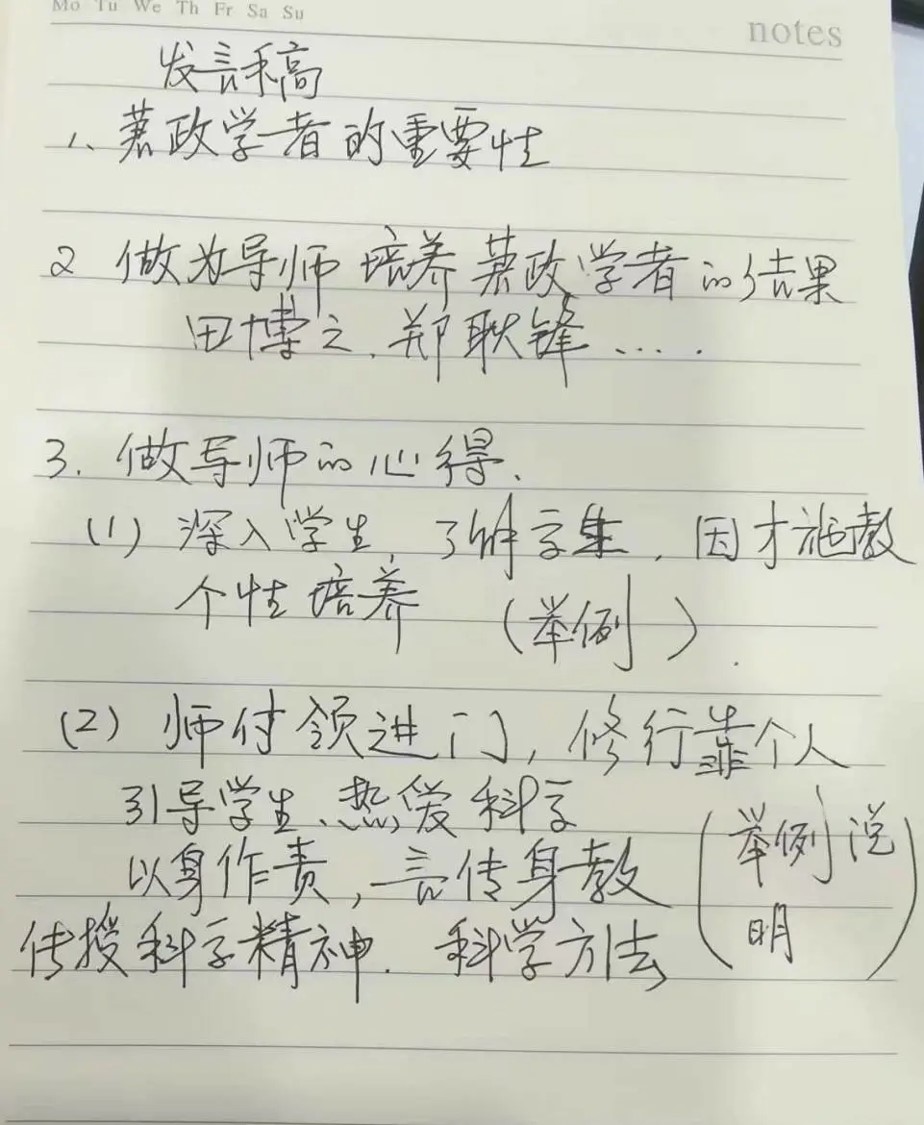 Mo Tu We Th Fr Sa Su
notes
发言稿
1、莙政学者的重要性
2 做为导师 培养莙政学者的结果
田博之、郑耿锋.....
3. 做导师的心得、
(1) 深入学生,了解学生,因才施教
个性培养 (举例).
(2) 师付领进门,修行靠个人
引导学生、热爱科学
以身作责,言传身教
(举例说明)
传授科学精神. 科学方法